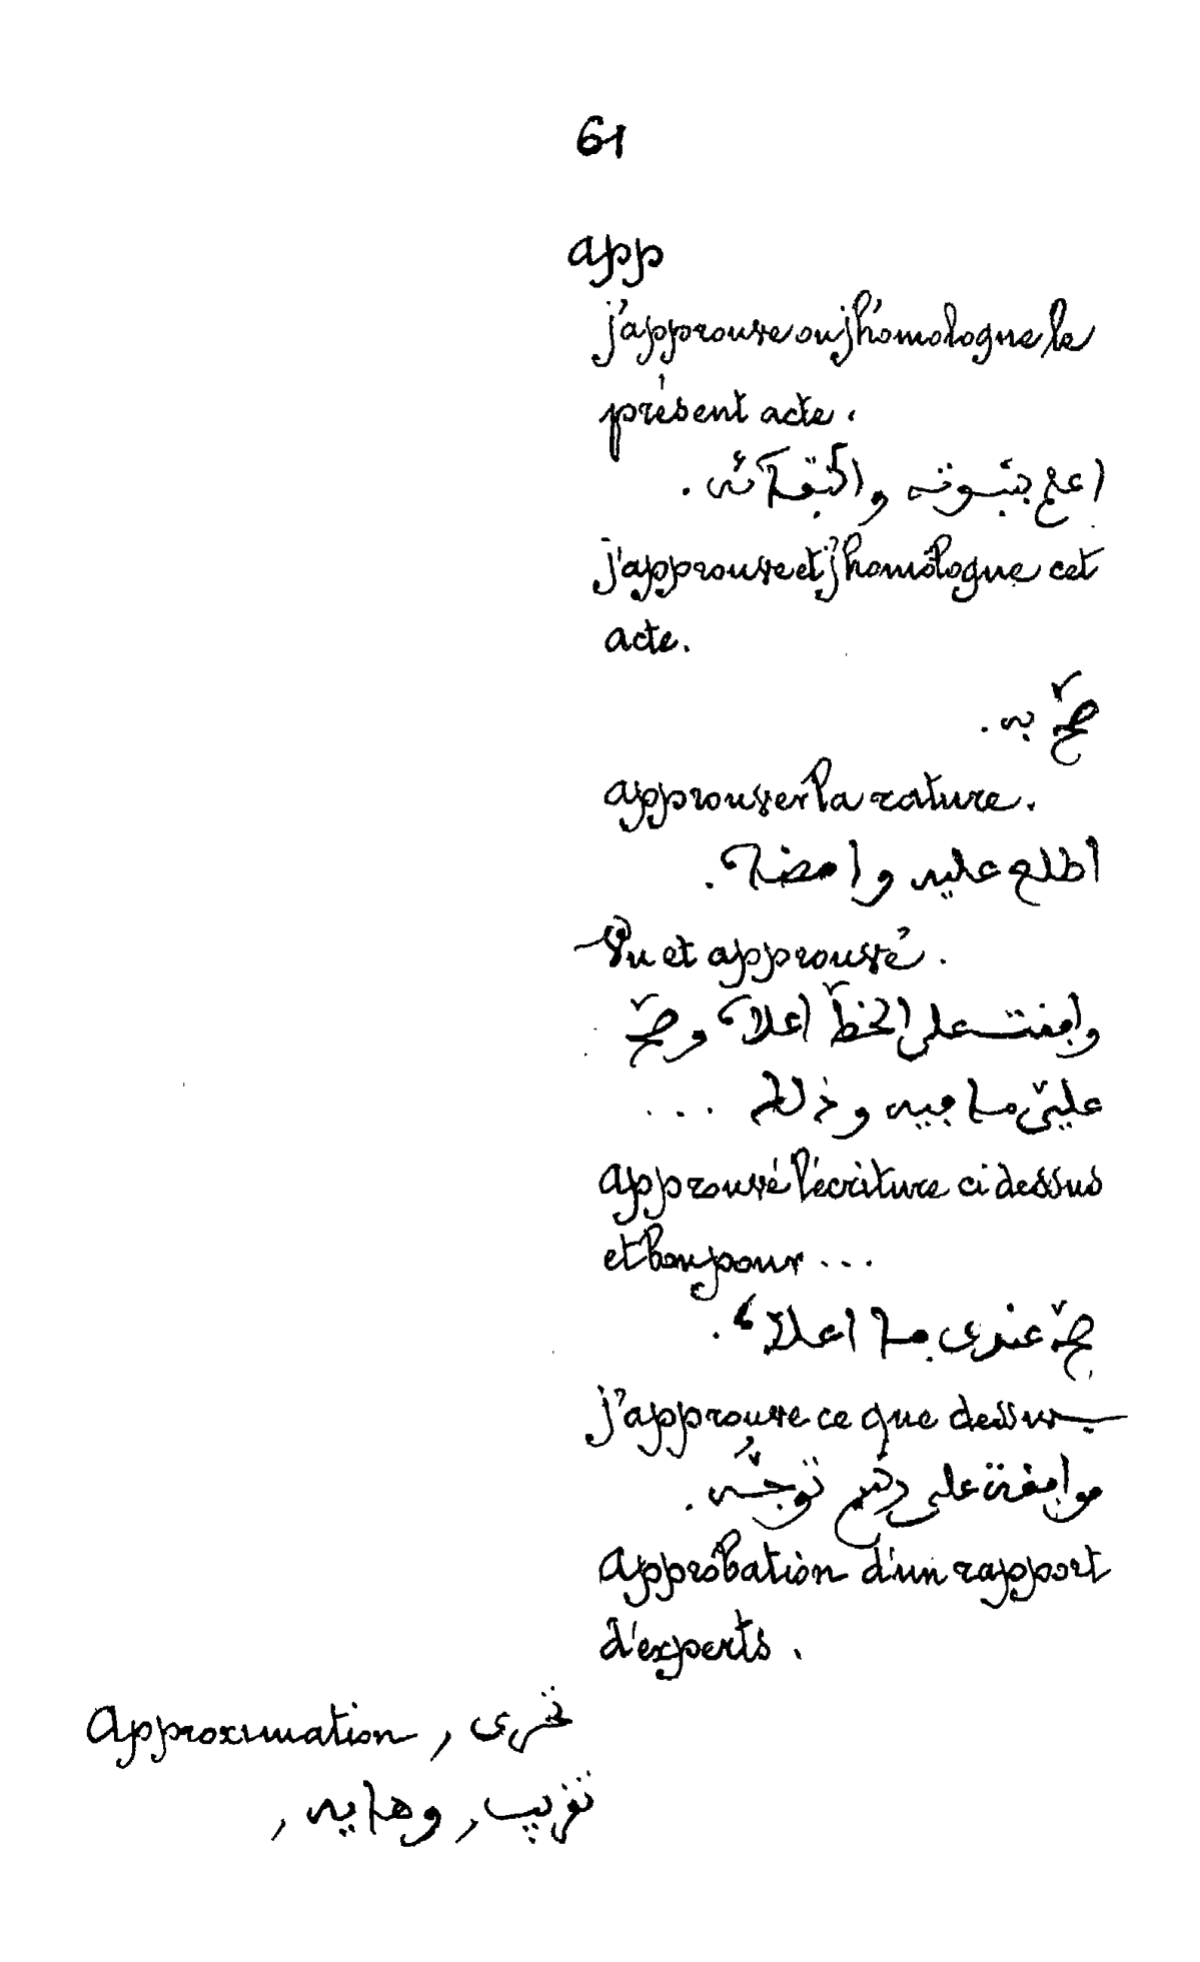 61
app
j'approuve ou j'homologue le
présent acte.
اعلم بثبوته و
j'approuve et j'homologue cet
acte.
صحّ به.
approuver la rature.
اطلع عليه وامضاه.
Vu et approuvé.
وافقت على الخطّ اعلاه وصحّ
عليّ ما فيه وذلك ...
approuvé l'écriture ci dessus
et bon pour ...
صحّ عندى ما اعلاه.
j'approuve ce que dessus
موافقة على توجّه.
Approbation d'un rapport
d'experts.
Approximation, تحرى
تقريب, وهايه,